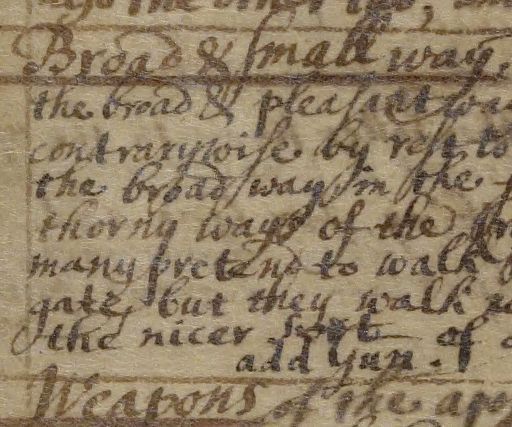 to the other
Broad & small way.
the broad & pleasant
contrarywise by rest to
the broad way in the
thorny ways of the
many pretend to walk
gate, but they walk
the nicer sort of
add Gun.
Weapons of the